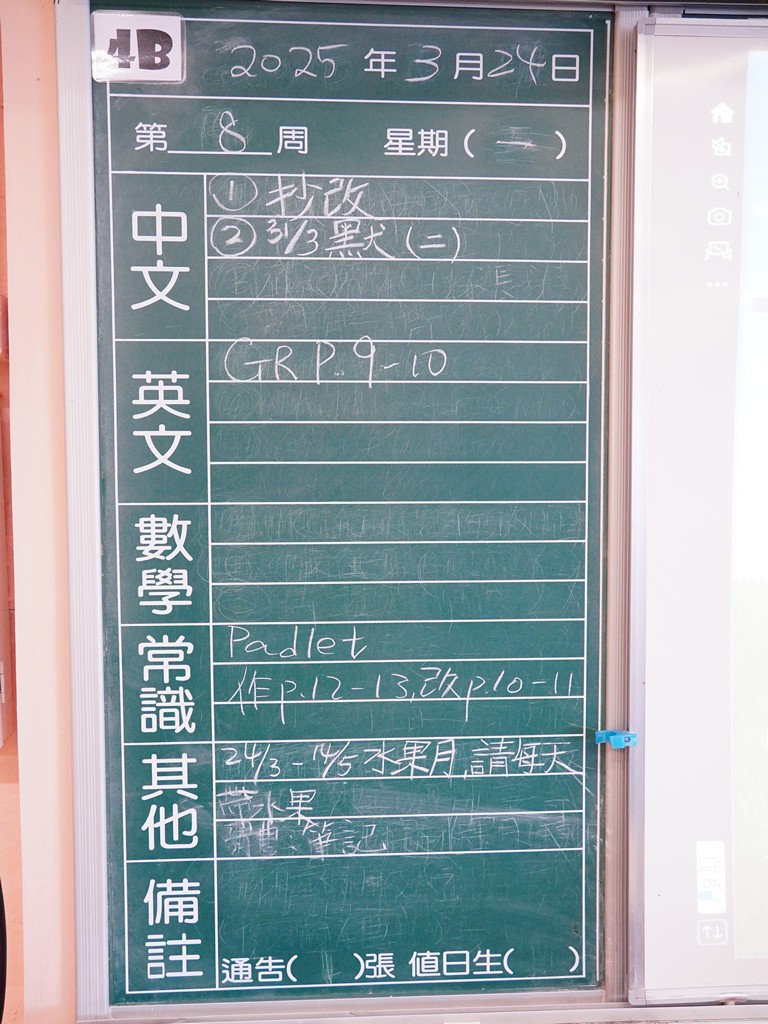 4B
2025年3月24日
第 8 周 星期(一)
中文
① 抄改
② 31/3 默(二)
英文
GR P. 9-10
數學
常識
Padlet
作p.12-13,改p.10-11
其他
24/3 - 14/5 水果月,請每天
帶水果
筆記
備註
通告( )張 值日生( )